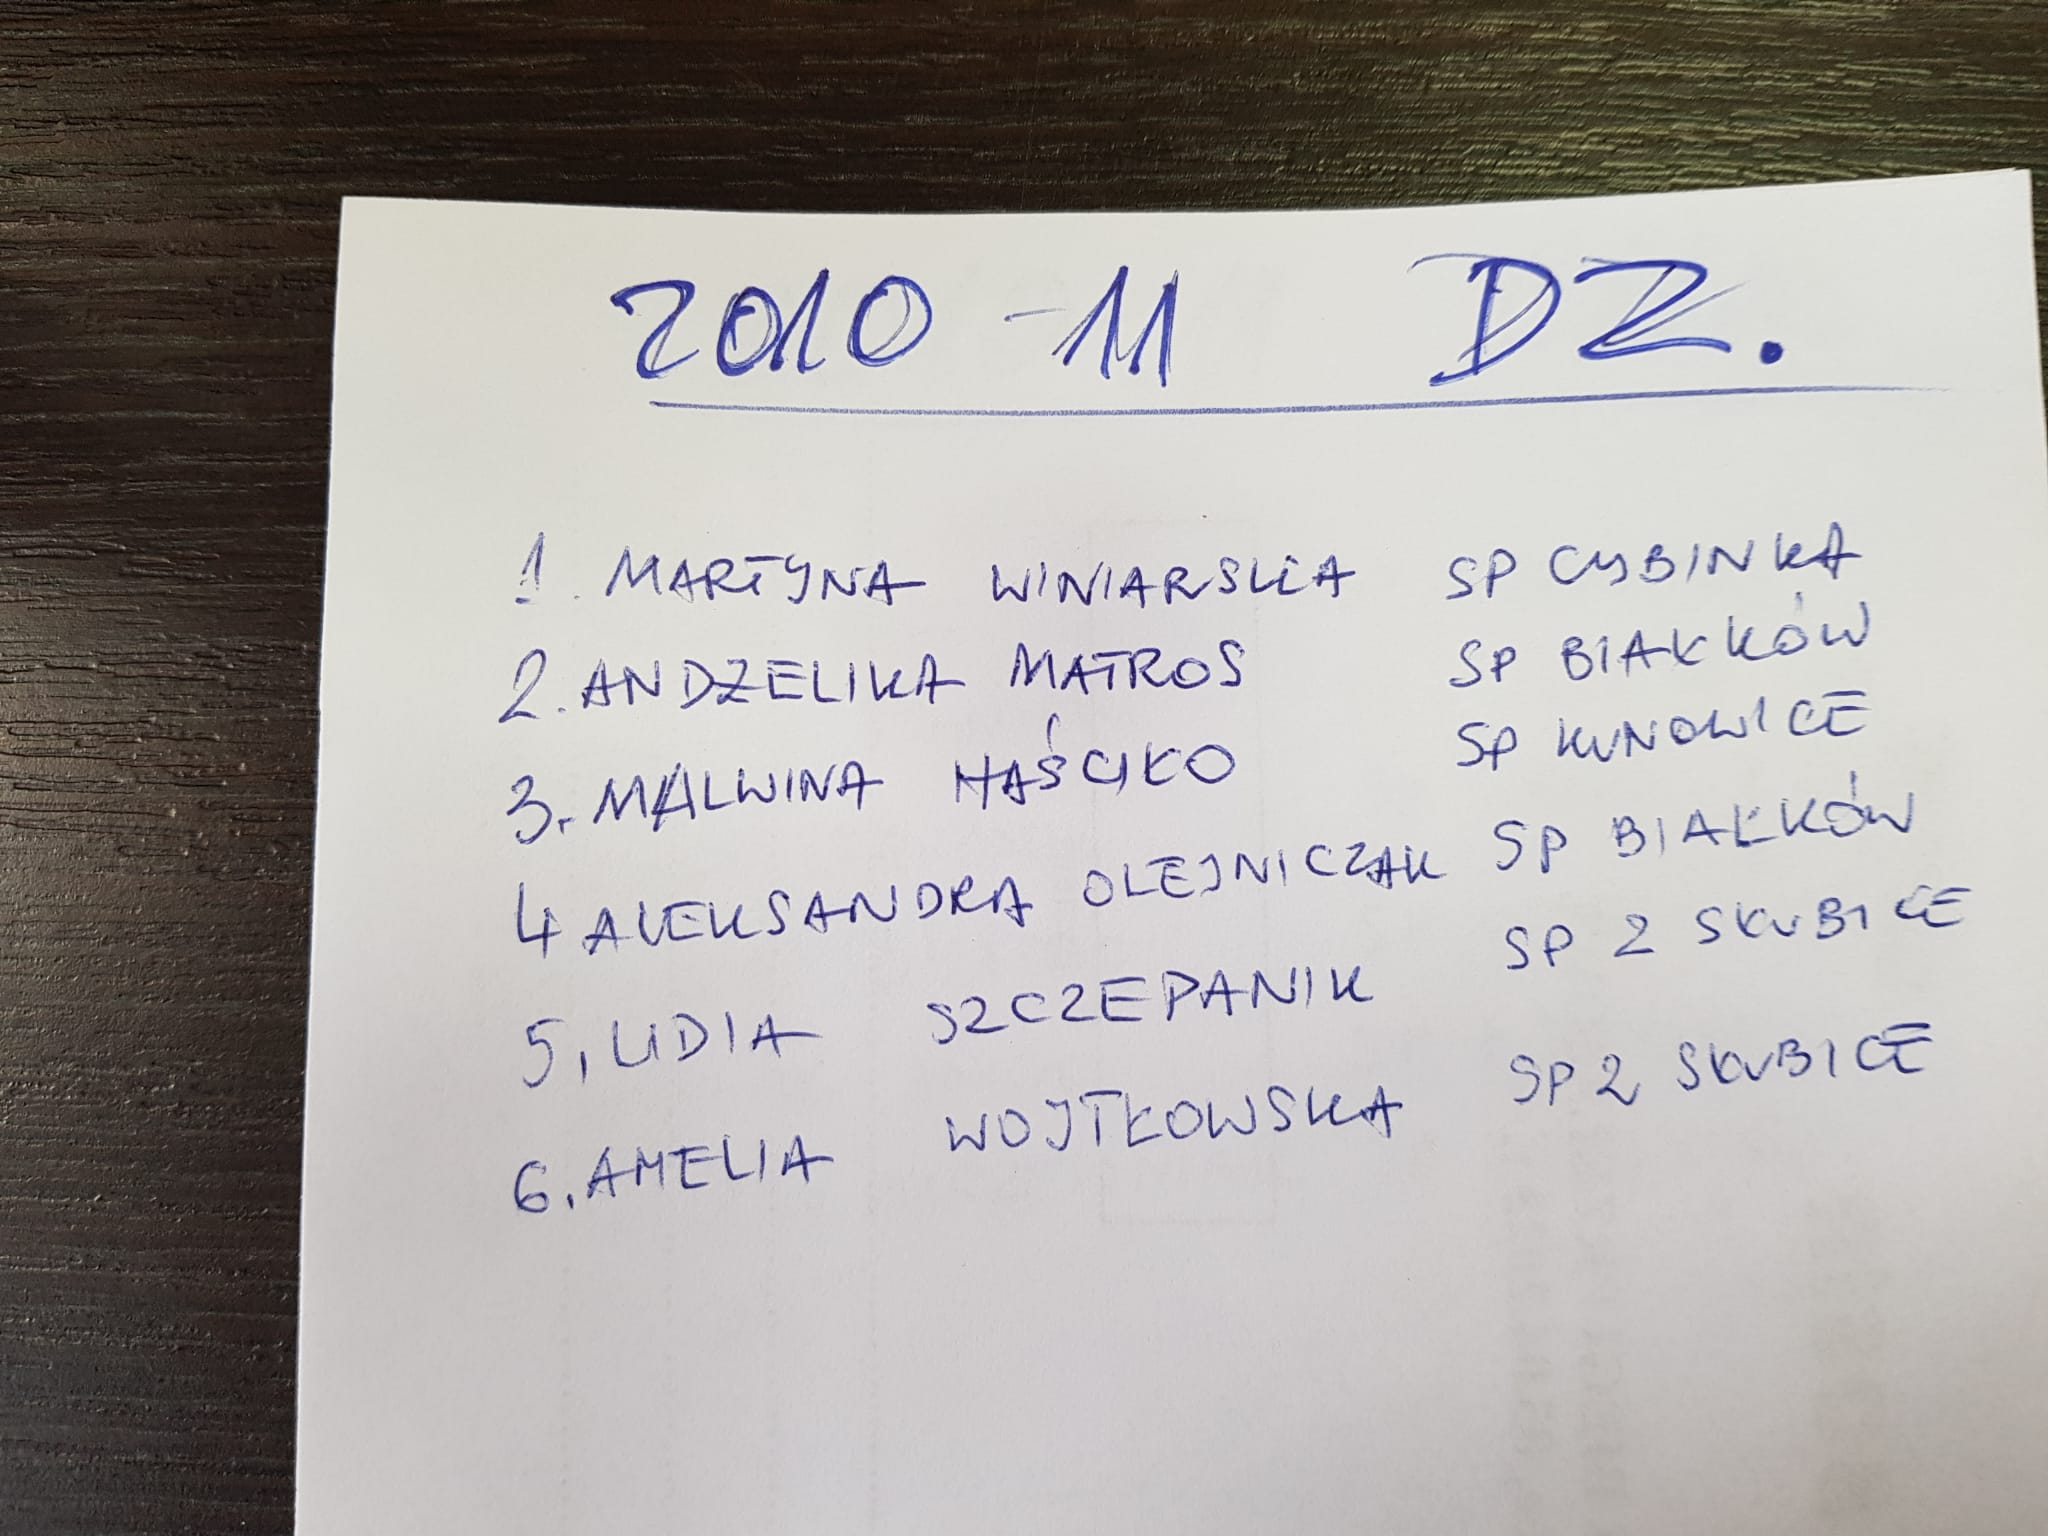 2010-11 DZ.
1. MARTYNA WINIARSKA SP CYBINKA
2. ANDZELIKA MATROS SP BIAŁKÓW
3. MALWINA HAŚCIKO SP KUNOWICE
4 ALEKSANDRA OLEJNICZAK SP BIAŁKÓW
5. LIDIA SZCZEPANIK SP 2 SŁUBICE
6. AMELIA WOJTKOWSKA SP 2 SŁUBICE